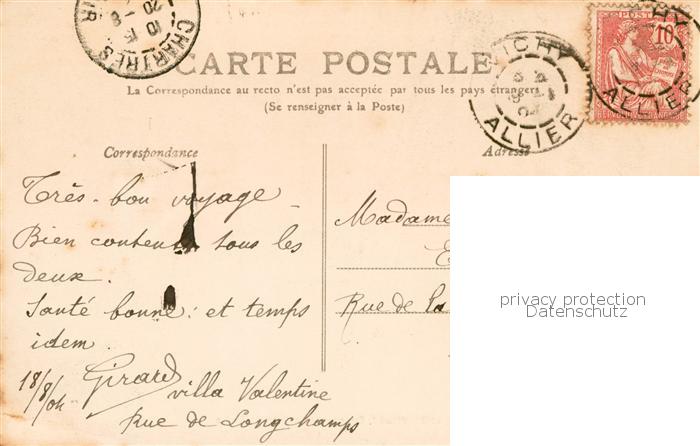 CARTE POSTALE
La Correspondance au recto n'est pas acceptée par tous les pays étrangers
(Se renseigner à la Poste)
CHARTRES
VICHY
ALLIER
POSTES
10
REPUBLIQUE FRANÇAISE
ALLIER
Correspondance
Très-bon voyage
Bien contents tous les
deux.
Santé bonne: et temps
idem.
18/8/04 Girard
villa Valentine
Rue de Longchamps
Adresse
Madame
Rue de la
privacy protection
Datenschutz